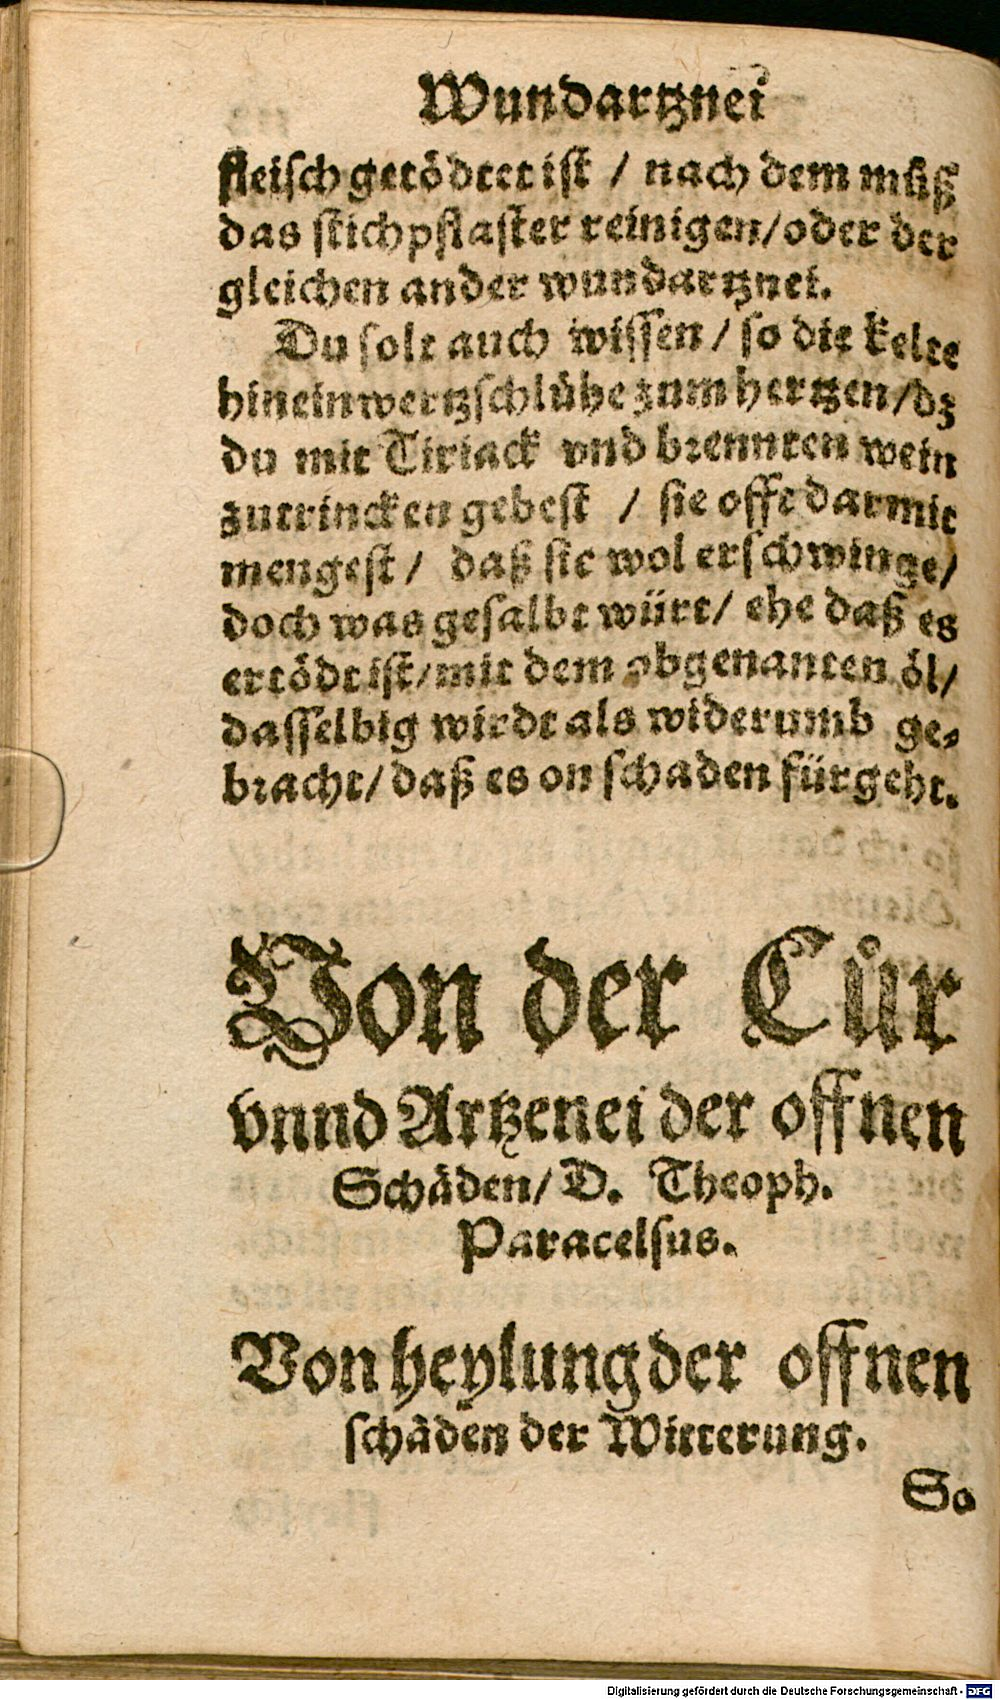 Wundartznei
fleisch getödtet ist / nach dem muͤß
das stichpflaster reinigen/oder der
gleichen ander wundartznei.
Du solt auch wissen / so die kelte
hineinwertzschlühe zum hertzen/dz
du mit Tiriack vnd brennten wein
zutrincken gebest / sie offt darmit
mengest / daß sie wol erschwinge/
doch was gesalbt würt/ ehe daß es
ertödt ist/mit dem obgenanten öl/
dasselbig wirdt als widerumb ge-
bracht/daß es on schaden fürgeht.
Von der Cůr
vnnd Artzenei der offnen
Schäden/ D. Theoph.
Paracelsus.
Von heylung der offnen
schäden der Witterung.
So
Digitalisierung gefördert durch die Deutsche Forschungsgemeinschaft - DFG